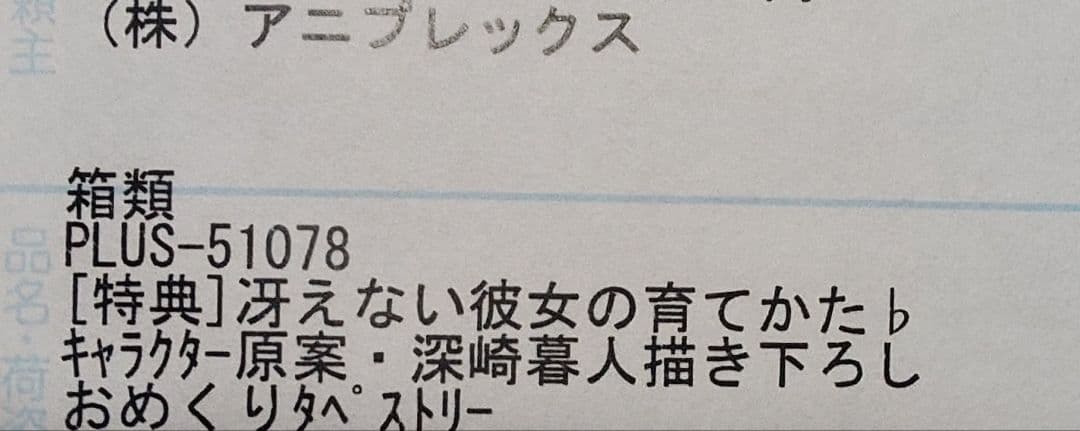 頼主
(株) アニプレックス
箱類
PLUS-51078
[特典]冴えない彼女の育てかた♭
ｷｬﾗｸﾀｰ原案・深崎暮人描き下ろし
おめくりﾀﾍﾟｽﾄﾘｰ
品名・荷姿